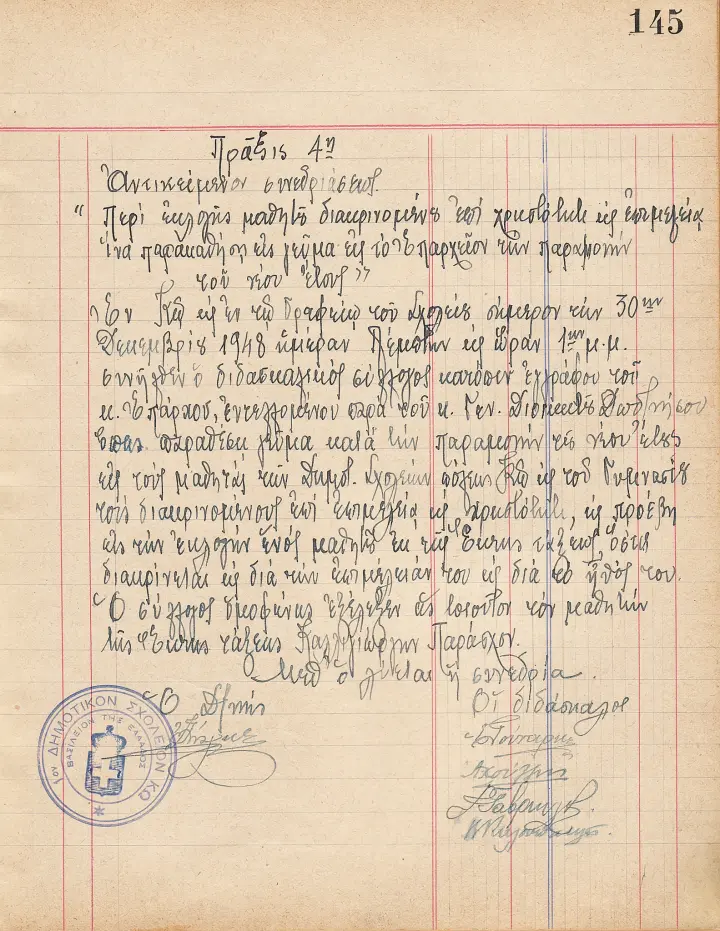 145
Πρᾶξις 4η
Ἀντικείμενον συνεδριάσεως.
"Περὶ ἐκλογῆς μαθητοῦ διακρινομένου ἐπὶ χρηστότητι κ ἐπιμελείᾳ
ἵνα παρακαθήσῃ εἰς γεῦμα εἰς τὸ Ἐπαρχεῖον τὴν παραμονὴν
τοῦ νέου ἔτους"
Ἐν Κῷ κ ἐν τῷ Γραφείῳ τοῦ Σχολείου σήμερον τὴν 30ην
Δεκεμβρίου 1948 ἡμέραν Πέμπτην κ ὥραν 1ην μ.μ.
συνῆλθεν ὁ διδασκαλικὸς σύλλογος κατόπιν ἐγγράφου τοῦ
κ. Ἐπάρχου, ἐντελλομένου παρὰ τοῦ κ. Γεν. Διοικητοῦ Δωδ/νήσου
ὅπως παραθέσῃ γεῦμα κατὰ τὴν παραμονὴν τοῦ νέου ἔτους
εἰς τοὺς μαθητὰς τῶν Δημοτ. Σχολείων πόλεως Κῶ κ τοῦ Γυμνασίου
τοὺς διακρινομένους ἐπὶ ἐπιμελείᾳ κ χρηστότητι, κ προέβη
εἰς τὴν ἐκλογὴν ἑνὸς μαθητοῦ ἐκ τῆς Ἕκτης τάξεως, ὅστις
διακρίνεται κ διὰ τὴν ἐπιμέλειάν του κ διὰ τὸ ἦθός του.
Ὁ σύλλογος ὁμοφώνως ἐξέλεξεν ὡς τοιοῦτον τὸν μαθητὴν
τῆς Ἕκτης τάξεως Παράσχον.
Μεθ' ὃ λύεται ἡ συνεδρία.
Ὁ Δ/ντής
Οἱ διδάσκαλοι
1ον ΔΗΜΟΤΙΚΟΝ ΣΧΟΛΕΙΟΝ ΚΩ
ΒΑΣΙΛΕΙΟΝ ΤΗΣ ΕΛΛΑΔΟΣ